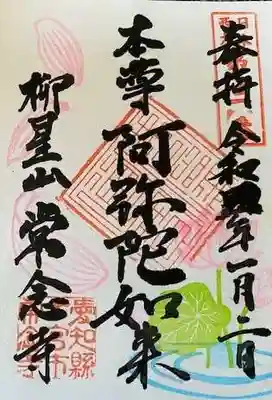 奉拝 令和四年一月二日
本尊 阿弥陀如来
柳星山 常念寺
愛知縣
一宮市
常念寺